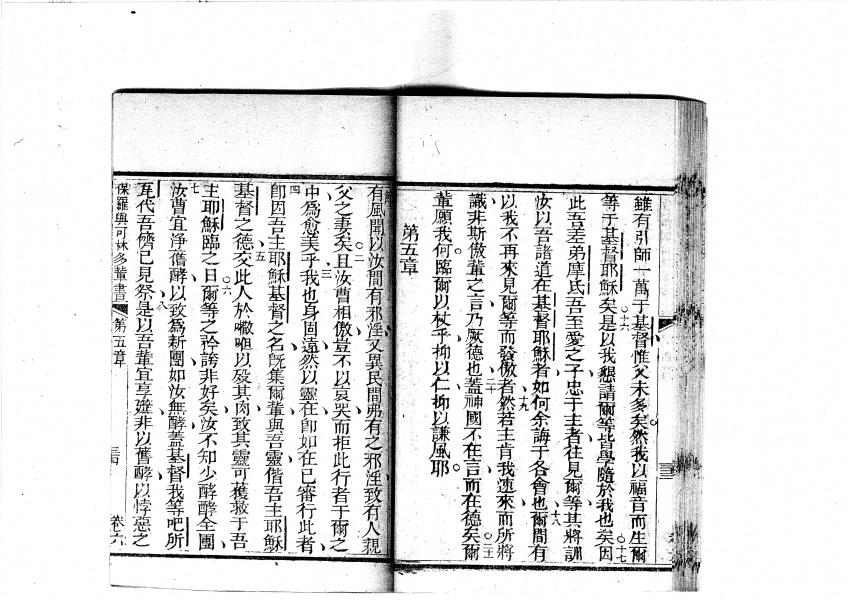 雖有引師一萬于基督惟父未多矣然我以福音而生爾
等于基督耶穌矣是以我懇請爾等皆學隨於我也矣因
十六
十七
此吾差弟摩氐吾至愛之子忠于主者往見爾等其將訓
汝以吾諸道在基督耶穌者如何余誨于各會也爾間有
十八
以我不再來見爾等而發傲者然若主肯我速來而所將
十九
識非斯傲輩之言乃厥德也蓋神國不在言而在德矣爾
二十
二一
輩願我何臨爾以杖乎抑以仁抑以謙風耶
第五章
有風聞以汝間有邪淫又異民間弗有之邪淫致有人親
父之妻矣且汝曹相傲豈不以哀哭而拒此行者于爾之
二
中為愈美乎我也身固遠然以靈在即如在已審行此者
三
即因吾主耶穌基督之名既集爾輩與吾靈偕吾主耶穌
四
基督之德交此人於𠹌呾以殁其肉致其靈可獲救于吾
五
主耶穌臨之日爾等之矜誇非好矣汝不知少酵酵全團
六
汝曹宜淨舊酵以致為新團如汝無酵蓋基督我等吧所
七
代吾儕已見祭是以吾輩宜享筵非以舊酵以悖惡之
八
保羅與可林多輩書
第五章
卷六